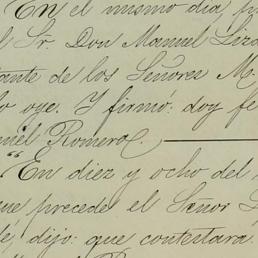 En el mismo día
Sr. Don Manuel
tante de los Señores M.
oye. Y firmó: doy fe
uel Romero.
"En diez y ocho del
que precede el Señor
dijo: que contestará